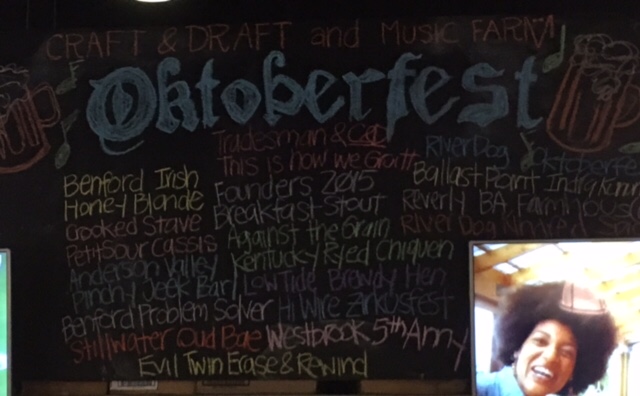 CRAFT & DRAFT and Music FARM
Oktoberfest
Tradesman &
This is how we
Benford Irish
Honey Blonde
Crooked Stave
Petit Sour Cassis
Anderson Valley
Pinchy Jeek Barl
Benford Problem Solver
Stillwater Oud Bae
Founders 2015
Breakfast Stout
Against the Grain
Kentucky Ryed Chiquen
LowTide Brewdy Hen
Hi Wire Zirkusfest
Westbrook 5th Anny
Evil Twin Erase & Rewind
RiverDog Oktoberfest
Ballast Point Indra
Reverly BA Farmhouse
River Dog